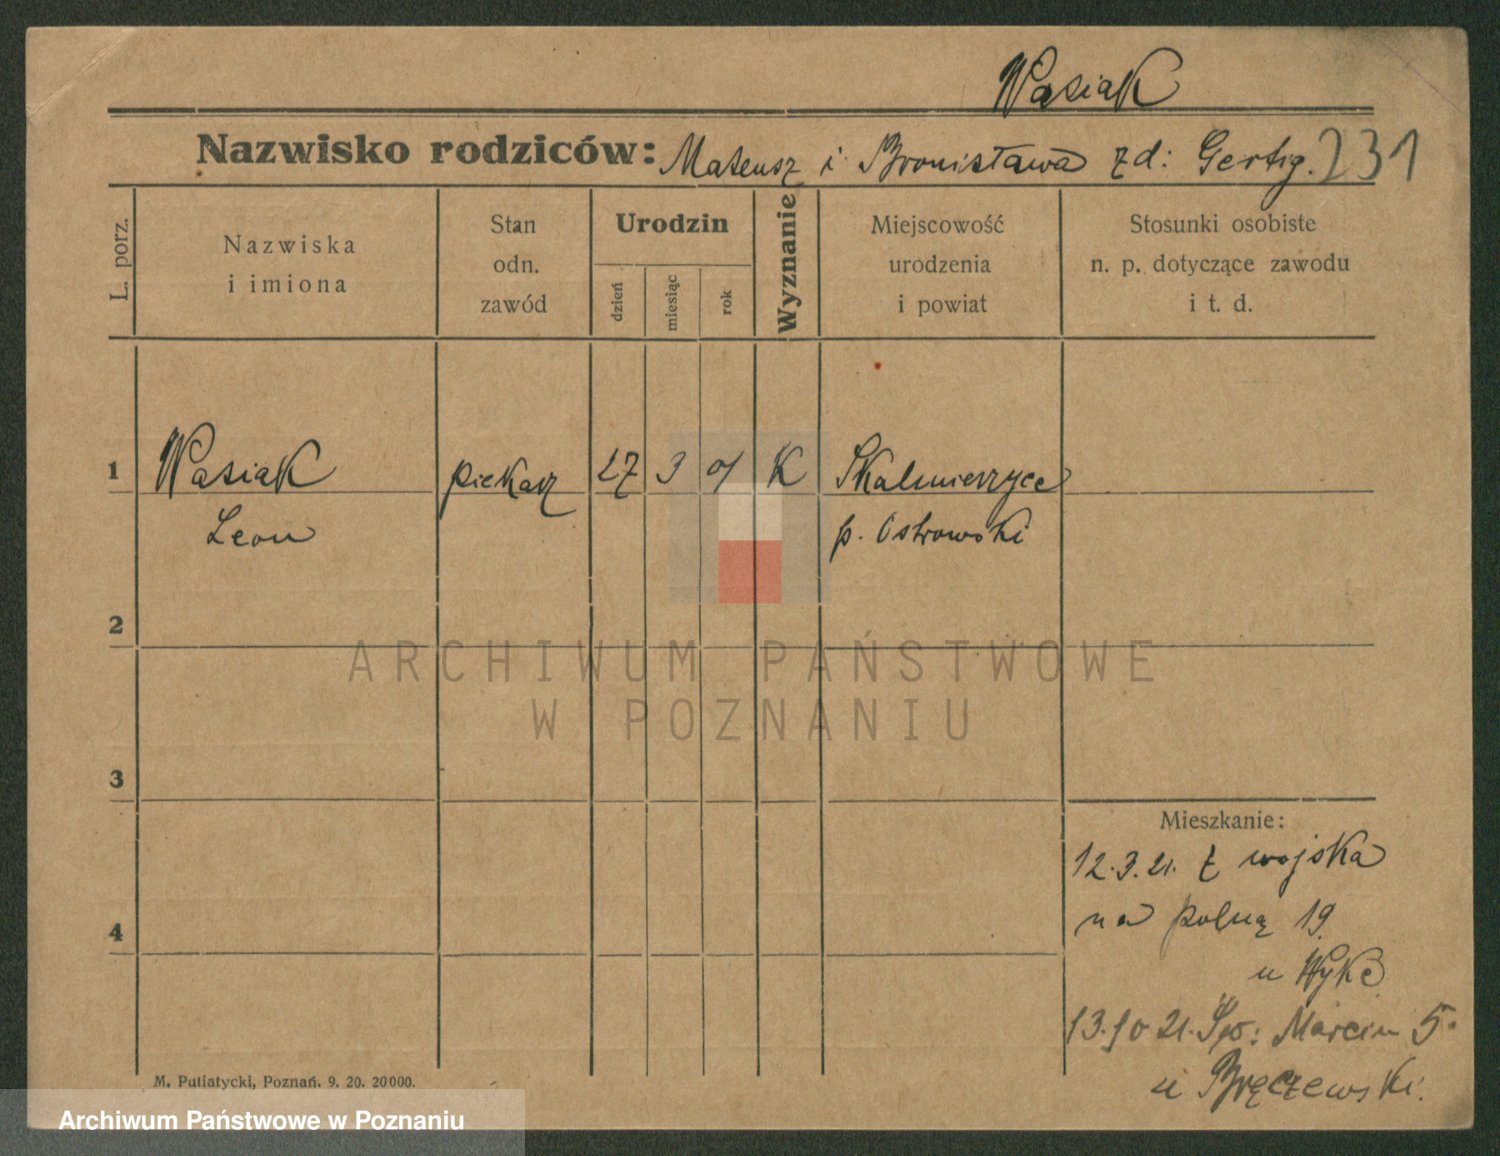 Wasiak
Nazwisko rodziców: Mateusz i Bronisława zd: Gertig. 231
L. porz.
Nazwiska
i imiona
Stan
odn.
zawód
Urodzin
dzień
miesiąc
rok
Wyznanie
Miejscowość
urodzenia
i powiat
Stosunki osobiste
n. p. dotyczące zawodu
i t. d.
1 Wasiak piekarz 27 3 01 K Skalmierzyce
Leon p. Ostrowski
2
ARCHIWUM PAŃSTWOWE
W POZNANIU
3
Mieszkanie:
12.3.21. z wojska
4 na Polną 19
u Wyke
13.10 21. Św: Marcin 5
u Bręczewski.
M. Putiatycki, Poznań. 9. 20. 20000.
Archiwum Państwowe w Poznaniu